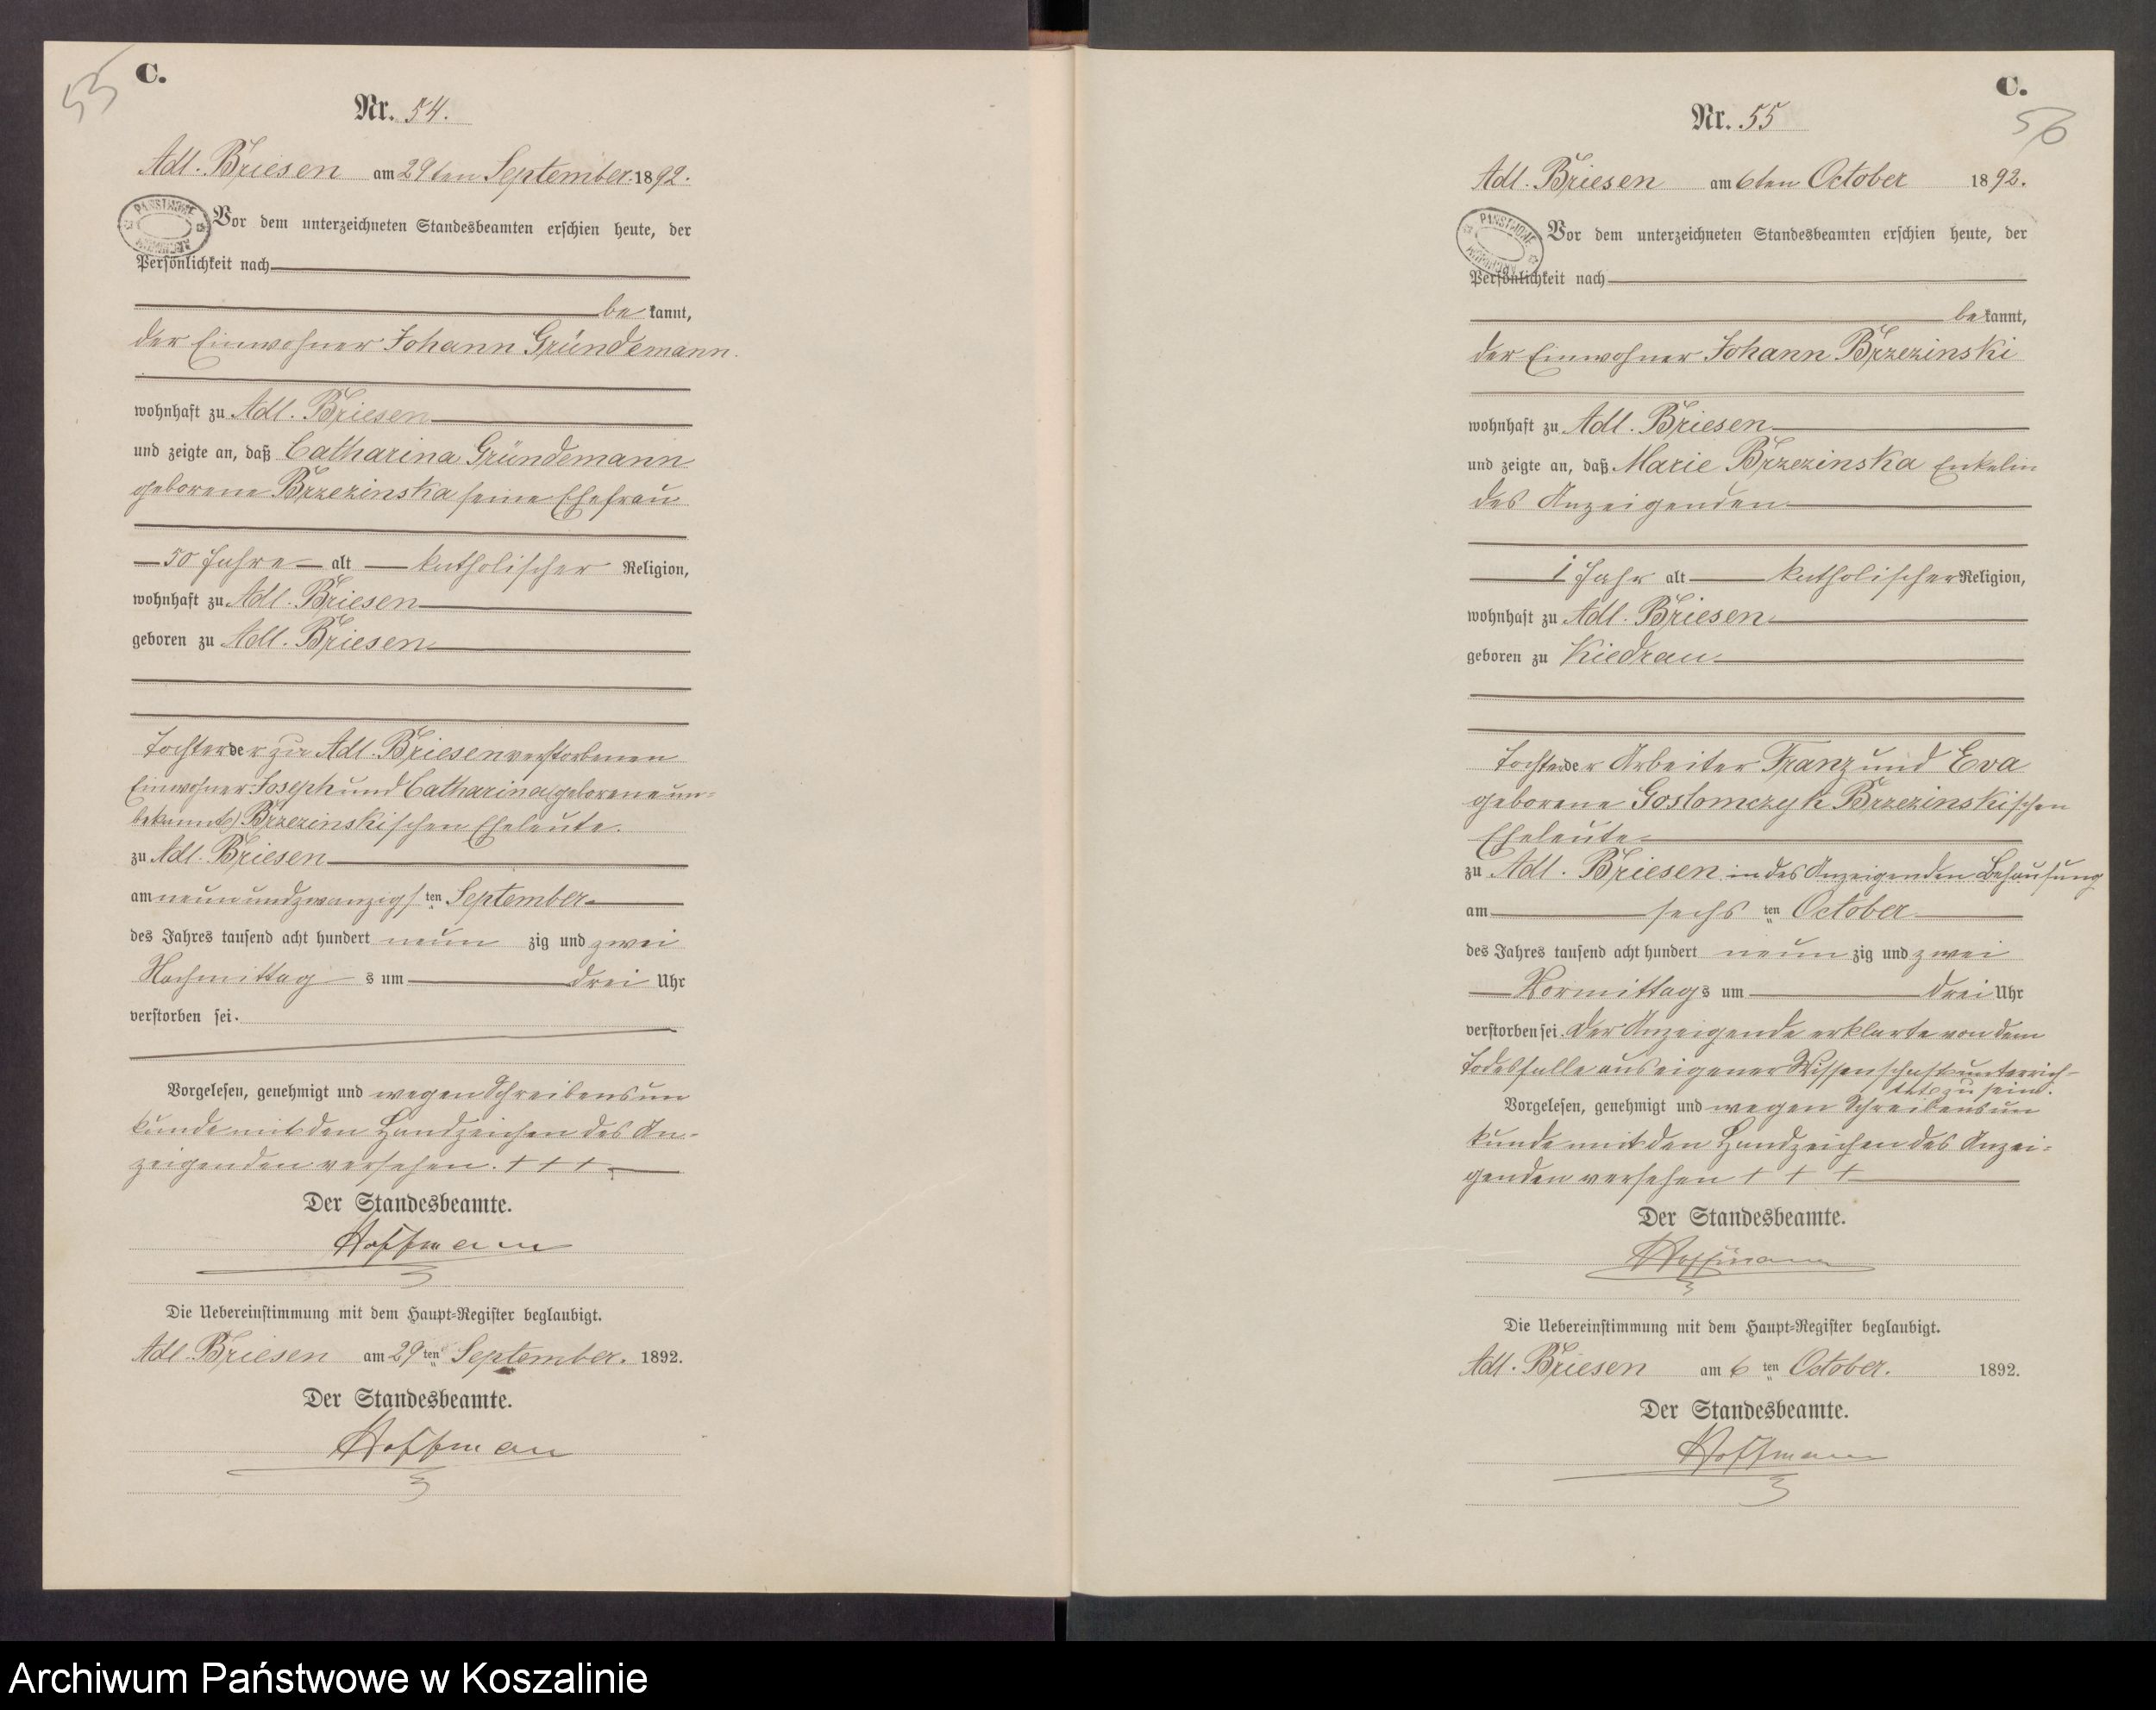 53
C.
Nr. 54.
Adl. Briesen am 29ten September 1892.
PAŃSTWOWE ARCHIWUM
Vor dem unterzeichneten Standesbeamten erschien heute, der
Persönlichkeit nach
be kannt,
der Einwohner Johann Gründemann.
wohnhaft zu Adl. Briesen
und zeigte an, daß Catharina Gründemann
geborene Brzezinska seine Ehefrau
50 Jahre alt katholischer Religion,
wohnhaft zu Adl. Briesen
geboren zu Adl. Briesen
Tochter der zu Adl. Briesen verstorbenen
Einwohner Joseph und Catharina (geborene un=
bekannt) Brzezinskischen Eheleute.
zu Adl. Briesen
am neunundzwanzigsten September
des Jahres tausend acht hundert neun zig und zwei
Nachmittag s um drei Uhr
verstorben sei.
Vorgelesen, genehmigt und wegen Schreibensun
kunde mit den Handzeichen des An-
zeigenden versehen. + + +
Der Standesbeamte.
Hoffmann
Die Uebereinstimmung mit dem Haupt=Register beglaubigt.
Adl. Briesen am 29ten September. 1892.
Der Standesbeamte.
Hoffmann
C.
56
Nr. 55
Adl. Briesen am 6ten October 1892.
PAŃSTWOWE ARCHIWUM
Vor dem unterzeichneten Standesbeamten erschien heute, der
Persönlichkeit nach
be kannt,
der Einwohner Johann Brzezinski
wohnhaft zu Adl. Briesen
und zeigte an, daß Marie Brzezinska Enkelin
des Anzeigenden
1 Jahr alt katholischer Religion,
wohnhaft zu Adl. Briesen
geboren zu Kiedrau
Tochter der Arbeiter Franz und Eva
geborene Gostomczyk Brzezinskischen
Eheleute
zu Adl. Briesen in des Anzeigenden Behausung
am sechsten October
des Jahres tausend acht hundert neun zig und zwei
Vormittags um drei Uhr
verstorben sei. Der Anzeigende erklarte von dem
Todesfalle aus eigener Wissenschaft unterrich-
tet zu sein.
Vorgelesen, genehmigt und wegen Schreibensun
kunde mit den Handzeichen des Anzei=
genden versehen + + +
Der Standesbeamte.
Hoffmann
Die Uebereinstimmung mit dem Haupt=Register beglaubigt.
Adl. Briesen am 6ten October. 1892.
Der Standesbeamte.
Hoffmann
Archiwum Państwowe w Koszalinie